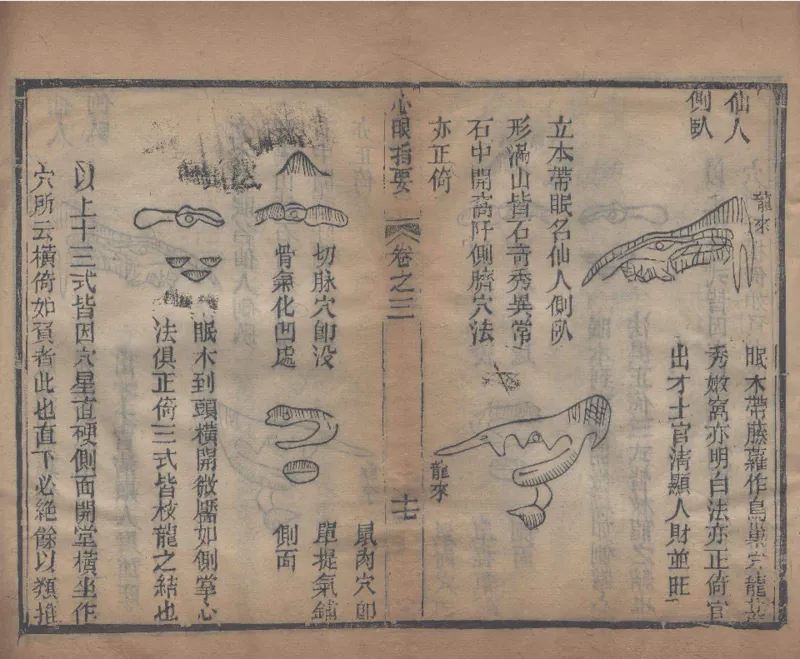 仙人
側臥
龍來
立木帶眠名仙人側臥
形滿山皆石奇秀異常
石中開窩阡側臍穴法
亦正倚
眠木帶藤蘿作鳥巢穴龍
秀嫩窩亦明白法亦正倚官
出才士官清顯人財並旺
龍來
心眼指要
卷之三
十七
切脉穴卽没
骨氣化凹處
鼠肉穴卽
單提氣鋪
側面
眠木到頭橫開微靨如側掌心
法俱正倚三式皆枝龍之結也
以上十三式皆因穴星直硬側面開堂橫坐作
穴所云橫倚如賓者此也直下必絶餘以類推